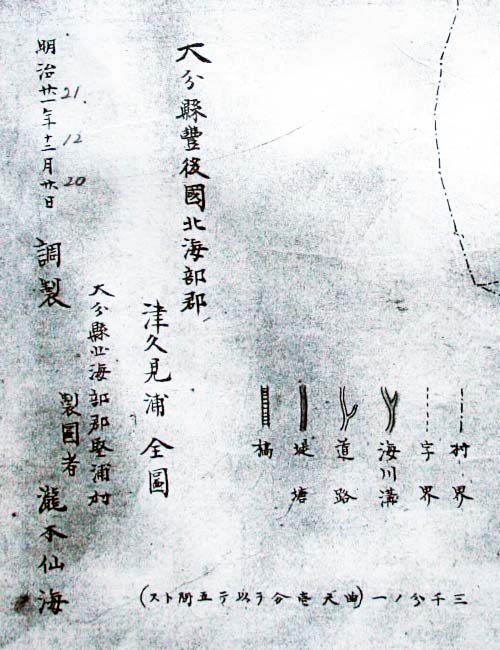 大分縣豐後國北海部郡
津久見浦全圖
明治廿一年十二月廿日 調製
21 12 20
大分縣北海部郡堅浦村
製圖者 瀧本仙海
村界
字界
海川溝
道路
堤塘
橋
三千分ノ一(曲尺壱分ヲ以テ五間トス)